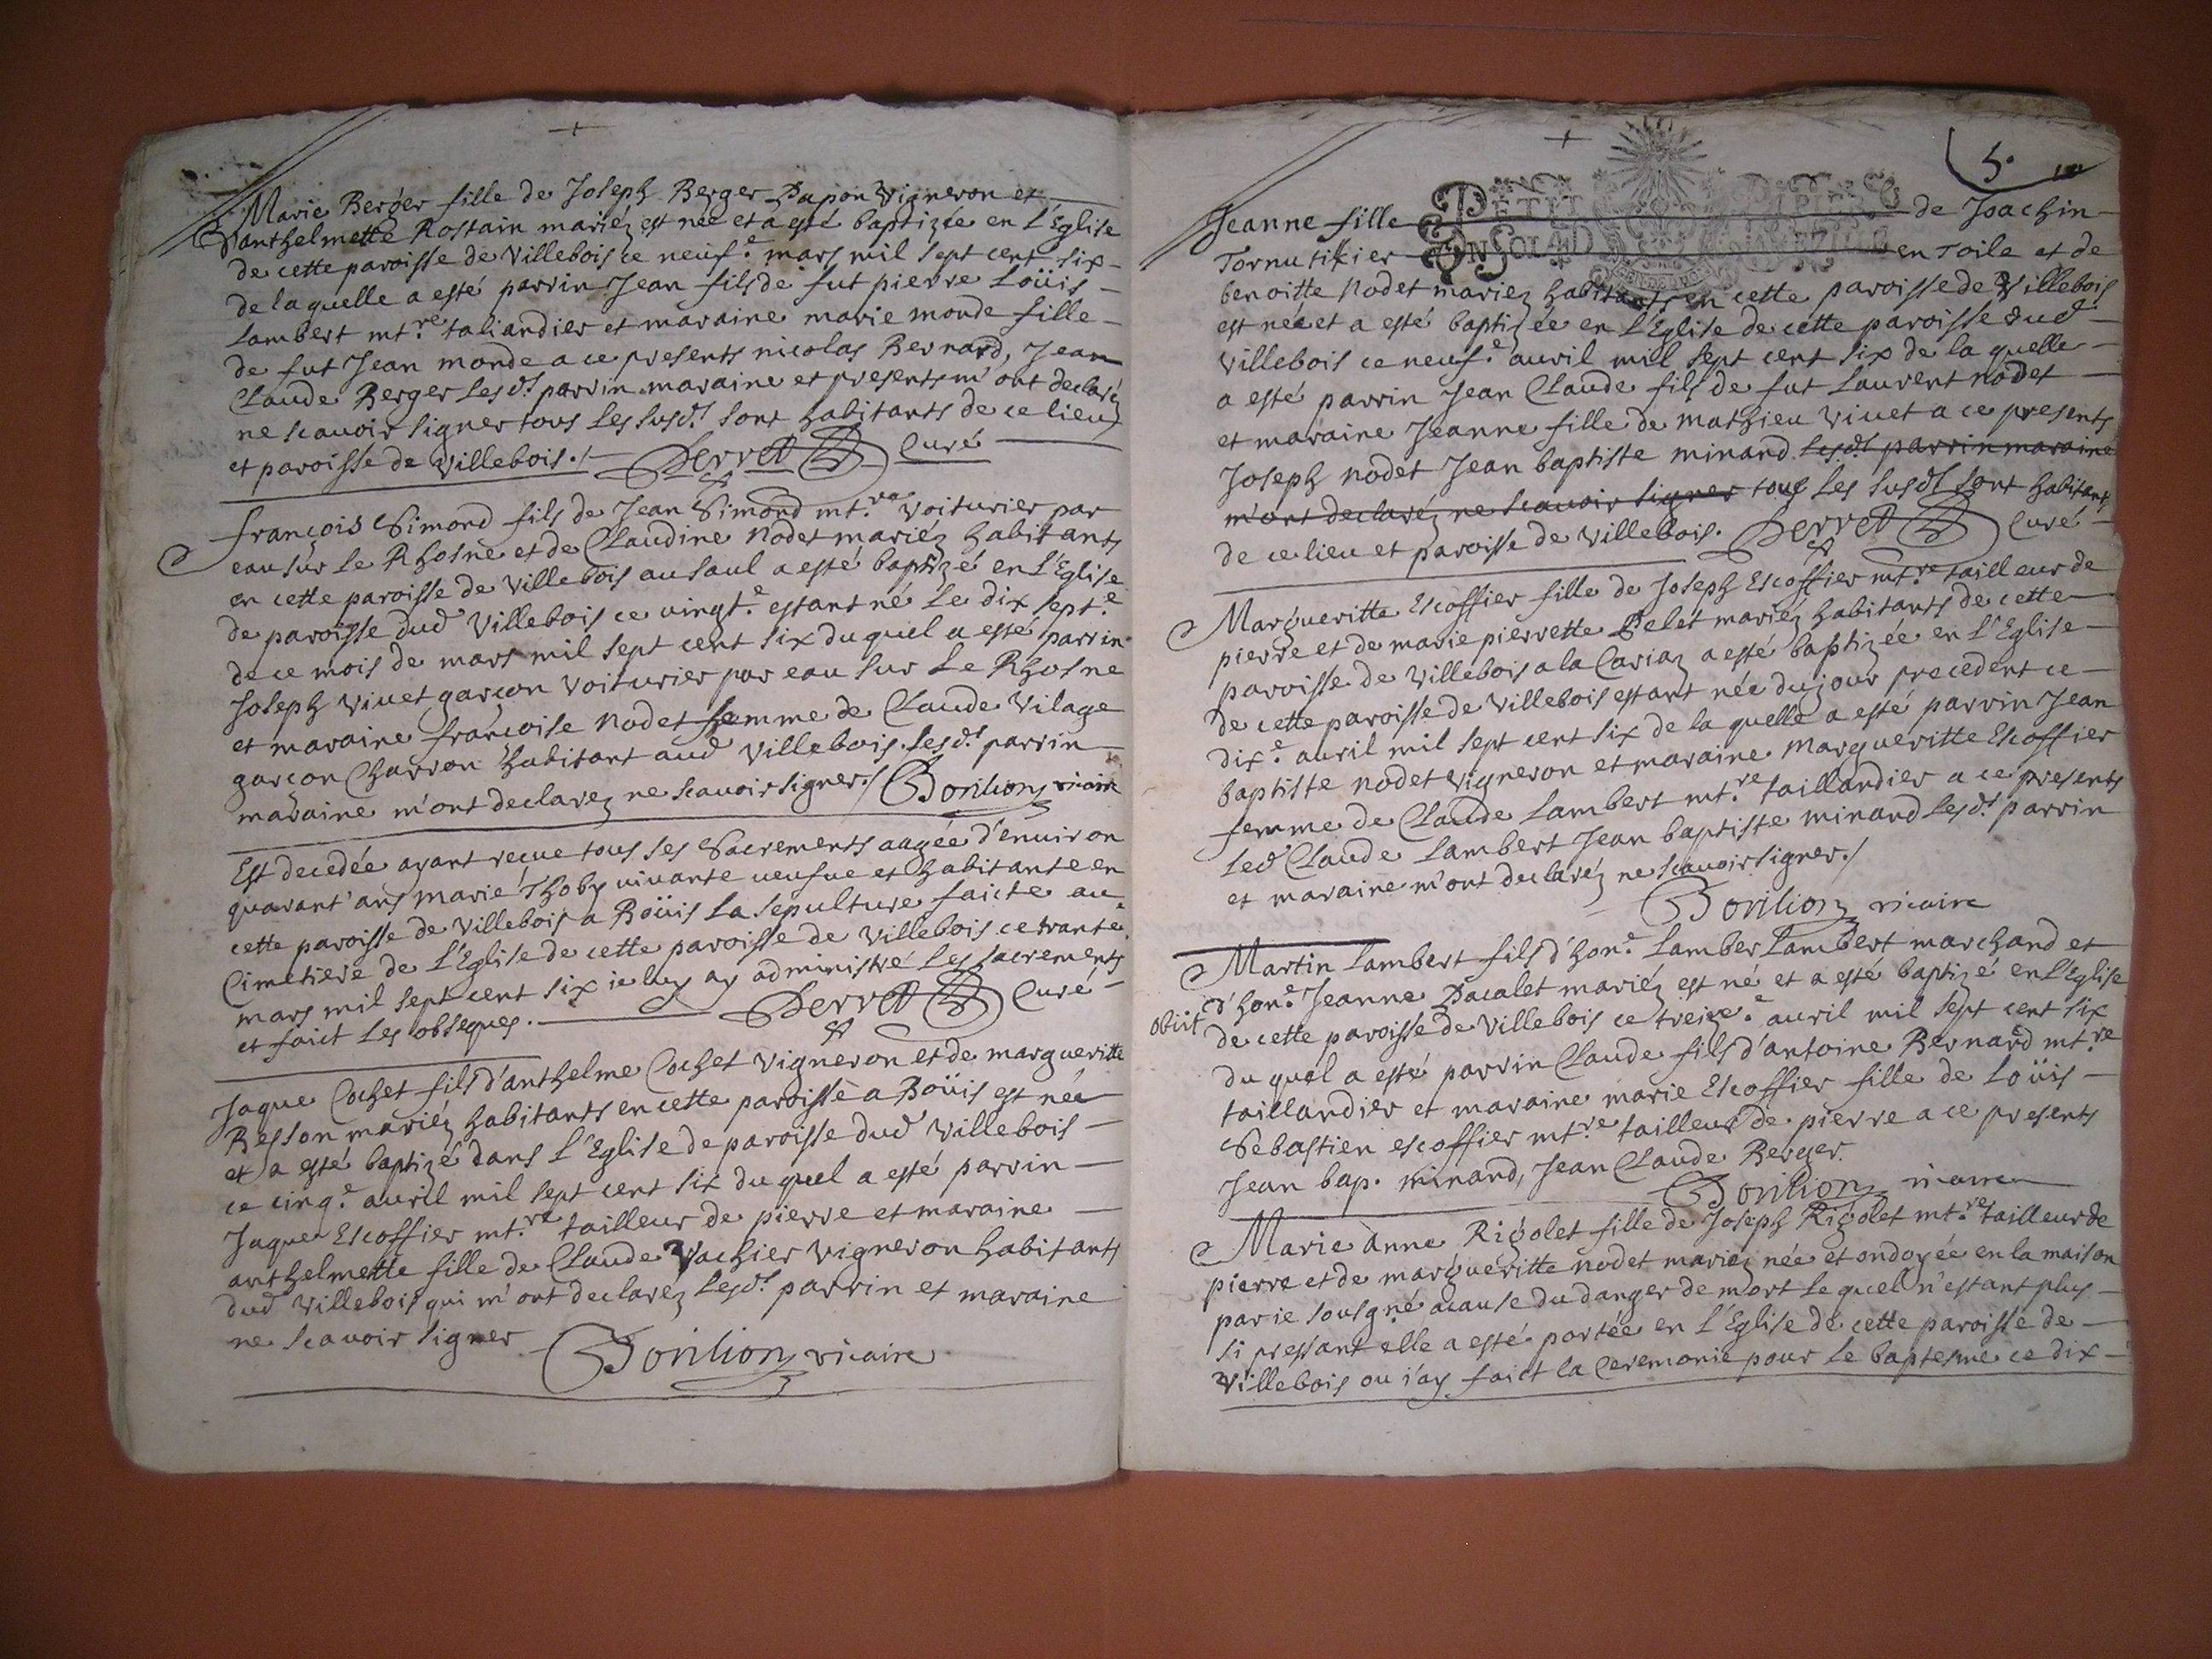 Marie Berger fille de Joseph Berger Dupon vigneron et
d'anthelmette Rostain mariéz est née et a esté baptizée en L'Eglise
de cette paroisse de villebois ce neuf.e mars mil sept cent six
de laquelle a esté parrin Jean fils de fut pierre Loüis
Lambert mt.re taliandier et maraine marie monde fille
de fut Jean monde a ce presents nicolas Bernard, Jean
Claude Berger Lesd.ts parrin maraine et presents m'ont declaréz
ne scavoir signer tous Les susd.ts sont habitants de ce lieu
et paroisse de villebois./. Perret Curé
françois Simond fils de Jean Simond mt.re voiturier par
eau sur Le Rhosne et de Claudine Nodet mariéz habitants
en cette paroisse de villebois au saul a esté baptizé en L'Eglise
de paroisse dud villebois ce vingt.e estant né Le dix sept.e
de ce mois de mars mil sept cent six du quel a esté parrin
Joseph vivet garçon voiturier par eau sur Le Rhosne
et maraine françoise Nodet femme de Claude vilage
garçon Charron habitant aud villebois. Lesd.ts parrin
maraine m'ont declarez ne scavoir signer./ Borilion vicaire
Est decedée ayant reçue tous ses Sacrements aagée d'environ
quarant'ans marie Thoby vivante veufve et habitante en
cette paroisse de villebois a Boüis La sepulture faicte au
Cimetiere de L'Eglise de cette paroisse de villebois ce trante
mars mil sept cent six ie luy ay administré Les sacrements
et faict Les obseques. Perret Curé
Jaque Cochet fils d'anthelme Cochet vigneron et de margueritte
Besson mariéz habitants en cette paroisse a Boüis est née
et a esté baptizé dans L'Eglise de paroisse dud villebois
ce cinq.e avril mil sept cent six du quel a esté parrin
Jaque Escoffier mt.re tailleur de pierre et maraine
anthelmette fille de Claude Vachier vigneron habitants
dud villebois qui m'ont declarez Lesd.ts parrin et maraine
ne scavoir signer Borilion vicaire
5.
PETIT PAPIER
Jeanne fille de Joachin
Tornutikier en Toile et de
benoitte Nodet mariez habitants en cette paroisse de Villebois
est née et a esté baptizée en L'Eglise de cette paroisse dud
villebois ce neuf.e avril mil sept cent six de la quelle
a esté parrin Jean Claude fils de fut Laurent Nodet
et maraine Jeanne fille de mathieu vivet a ce presents
Joseph Nodet Jean baptiste minand Lesd.ts parrin maraine
m'ont declaréz ne scavoir signer tous Les susd.ts sont habitants
de ce lieu et paroisse de villebois. Perret Curé
Margueritte Escoffier fille de Joseph Escoffier mt.re tailleur de
pierre et de marie pierrette Belet mariéz habitants de cette
paroisse de villebois a la Cariaz a esté baptizée en L'Eglise
de cette paroisse de villebois estant née du jour precedent ce
dix.e avril mil sept cent six de la quelle a esté parrin Jean
baptiste Nodet vigneron et maraine Margueritte Escoffier
femme de Claude Lambert mt.re taillandier a ce presents
Led Claude Lambert Jean baptiste minand Lesd.ts parrin
et maraine m'ont declaréz ne scavoir signer./
Borilion vicaire
Martin Lambert fils d'hon.e Lamber Lambert marchand et
d'hon.e Jeanne Pacalet mariéz est né et a esté baptizé en L'Eglise
obiit
de cette paroisse de villebois ce treize.e avril mil sept cent six
du quel a esté parrin Claude fils d'antoine Bernard mt.re
taillandier et maraine marie Escoffier fille de Loüis
Sebastien escoffier mt.re tailleur de pierre a ce presents
Jean bap. minand, Jean Claude Berger.
Borilion vicaire
Marie Anne Rigolet fille de Joseph Rigolet mt.re tailleur de
pierre et de margueritte Nodet mariéz née et ondoyée en la maison
par ie sousgné acause du danger de mort Le quel n'estant plus
si pressant elle a esté portée en L'Eglise de cette paroisse de
villebois ou i'ay faict la Ceremonie pour Le baptesme ce dix